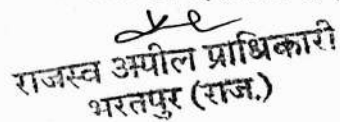 राजस्व अपील प्राधिकारी
भरतपुर (राज.)